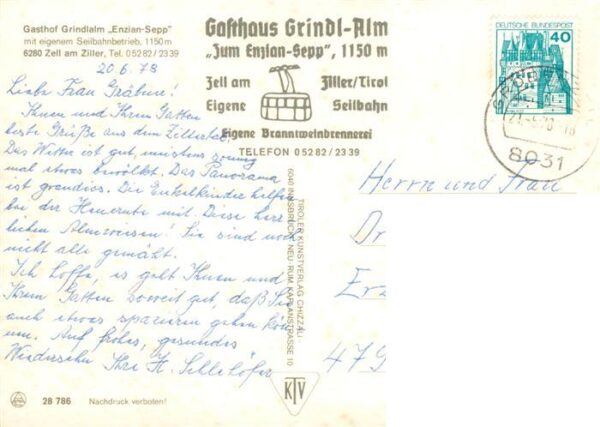 Gasthof Grindlalm „Enzian-Sepp"
mit eigenem Seilbahnbetrieb, 1150 m
6280 Zell am Ziller, Tel. 0 52 82 / 23 39
20.6.78
Liebe Frau Gräbner!
Ihnen und Ihrem Gatten
beste Grüße aus dem Zillertal.
Das Wetter ist gut, meistens sonnig
mal etwas bewölkt. Das Panorama
ist grandios. Die Enkelkinder helfen
bei der Heuernte mit. Diese herr
lichen Almwiesen! Sie sind noch
nicht alle gemäht.
Ich hoffe, es geht Ihnen und
Ihrem Gatten soweit gut, daß Sie
auch etwas spazieren gehen kön
nen. Auf frohes, gesundes
Wiedersehn Ihre H.
28 786 Nachdruck verboten!
Gasthaus Grindl-Alm
„Zum Enzian-Sepp", 1150 m
Zell am Ziller/Tirol
Eigene Seilbahn
Eigene Branntweinbrennerei
TELEFON 0 52 82 / 23 39
TIROLER KUNSTVERLAG CHIZZALI
6040 INNSBRUCK, NEU-RUM, KAPLANSTRASSE 10
KTV
DEUTSCHE BUNDESPOST
40
8031
Herrn und Frau
Dr
Er
479